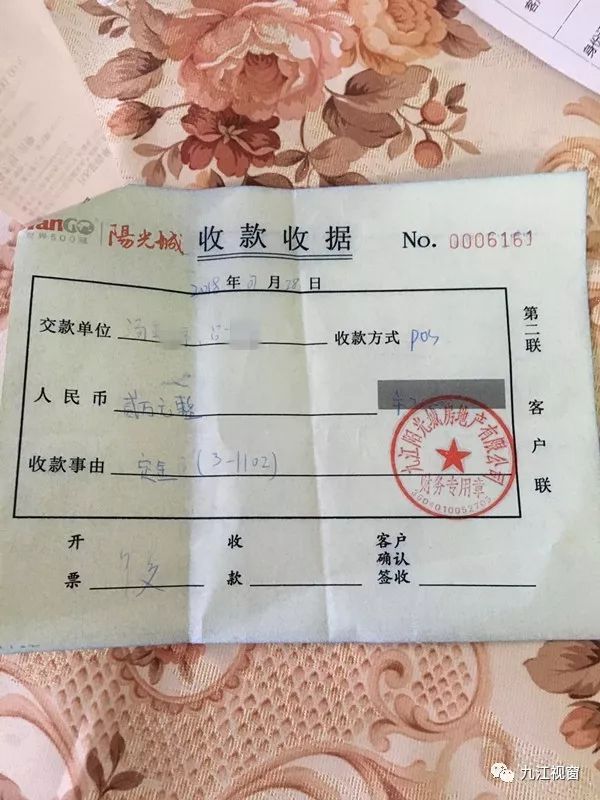 世界500强
陽光城 收款收据 No. 0006161
2018年 月28日
交款单位 收款方式 pos
人民币 贰万元整
收款事由 定金 (3-1102)
第二联 客户联
九江阳光城房地产有限公司
财务专用章
开票 收款 客户确认签收
九江视窗